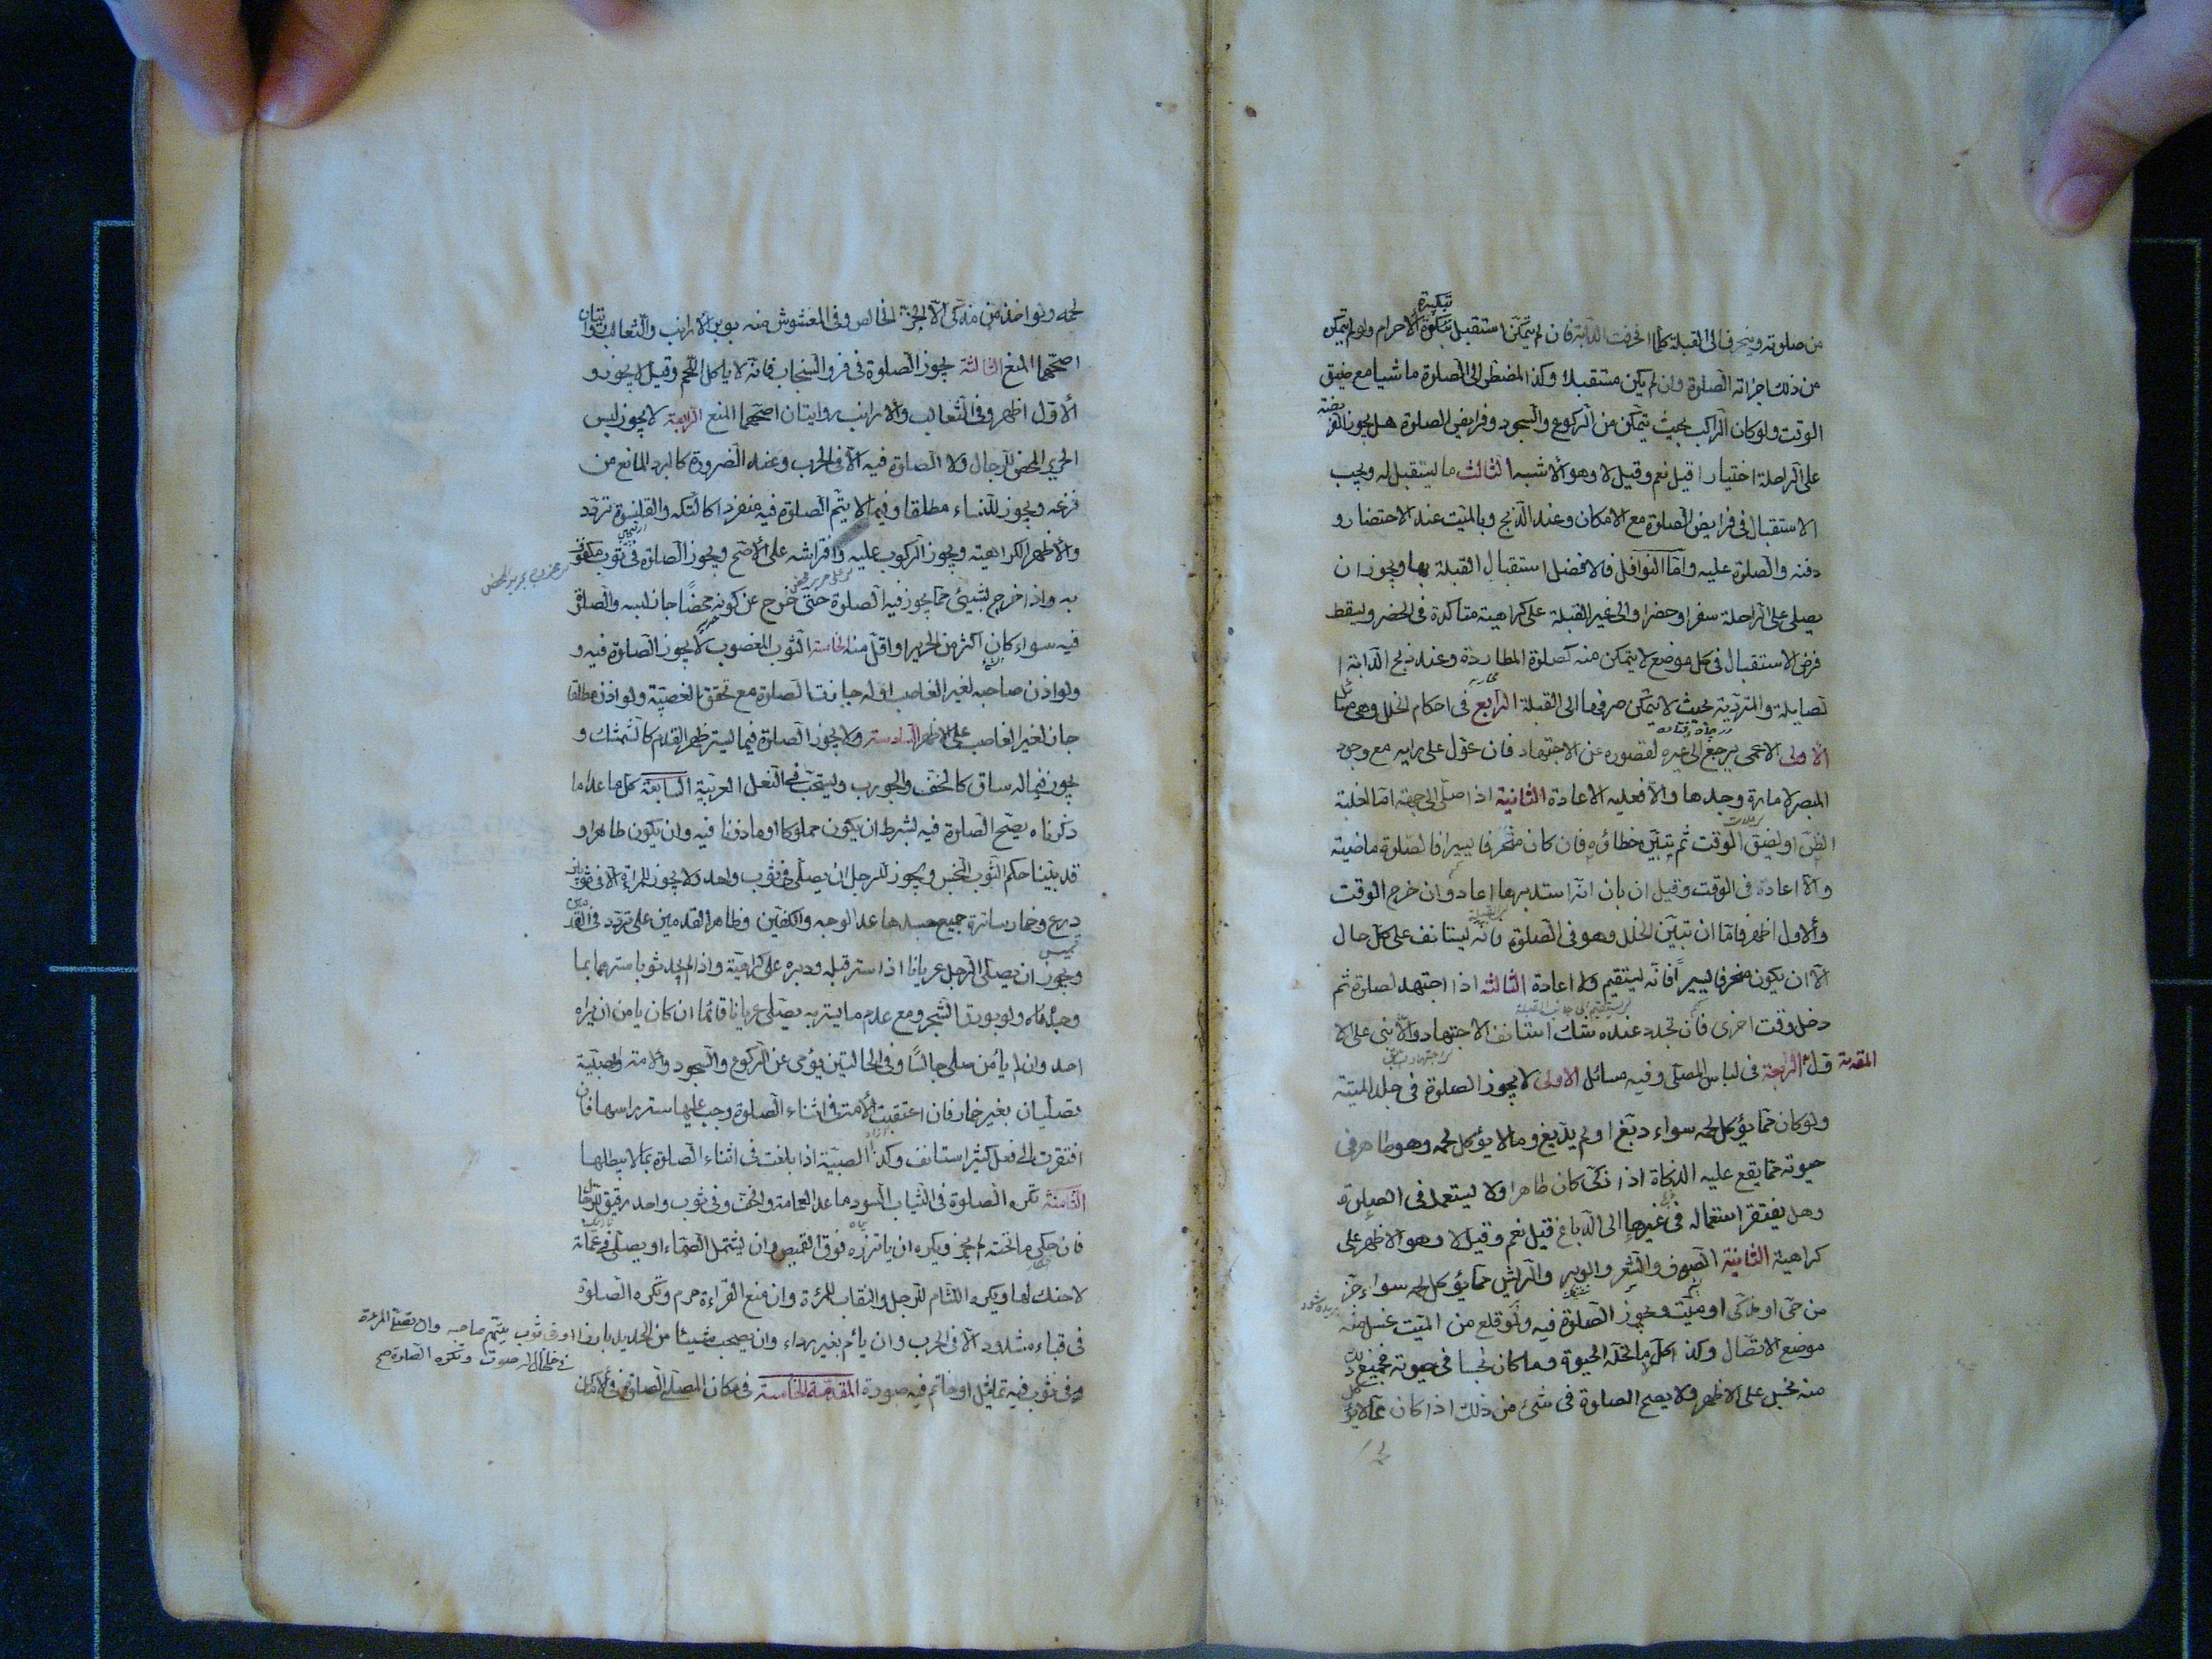 من صلوته وينحرف الى القبلة كلما انحرفت الدابة فان لم يتمكن استقبل بتكبيرة الاحرام ولو لم يتمكن
من ذلك اجزاته الصلوة وان لم يكن مستقبلا وكذا المضطر الى الصلوة ماشيا مع ضيق
الوقت ولو كان الراكب بحيث يتمكن من الركوع والسجود وفرايض الصلوة هل يجوز الفريضة
على الراحلة اختيارا قيل نعم وقيل لا وهو الاشبه الثالث ما يستقبل له ويجب
الاستقبال فى فرايض الصلوة مع الامكان وعند الذبح وبالميت عند الاحتضار و
دفنه والصلوة عليه واما النوافل فالافضل استقبال القبلة بها ويجوز ان
يصلى على الراحلة سفرا وحضرا والى غير القبلة على كراهية متاكدة فى الحضر ويسقط
فرض الاستقبال فى كل موضع لا يتمكن منه كصلوة المطاردة وعند ذبح الدابة ا
لصايلة والمتردية بحيث لا يتمكن صرفها الى القبلة الرابع فى احكام الخلل وهى مسائل
الاولى الاعمى يرجع الى غيره لقصوره عن الاجتهاد فان عول على رايه مع وجود
المبصر لامارة وجدها والا فعليه الاعادة الثانية اذا صلى الى جهة اما لغلبة
الظن او لضيق الوقت ثم تبين خطاؤه فان كان منحرفا يسيرا فالصلوة ماضية
والا اعادة فى الوقت وقيل ان بان انه استدبرها اعاد وان خرج الوقت
والاول اظهر فاما ان تبين الخلل وهو فى الصلوة فانه يستانف على كل حال
الا ان يكون منحرفا يسيرا فانه ليستقيم ولا اعادة الثالثه اذا اجتهد لصلوة ثم
دخل وقت اخرى فان تجدد عنده شك استانف الاجتهاد والا بنى على الا
المقدمة الرابعة فى لباس المصلى وفيه مسائل الاولى لا يجوز الصلوة فى جلد الميتة
ولو كان مما يؤكل لحمه سواء دبغ او لم يدبغ وما لا يؤكل لحمه وهو طاهر فى
حيوته مما يقع عليه الذكاة اذا ذكى كان طاهرا ولا يستعمل فى الصلوة
وهل يفتقر استعماله فى غيرها الى الدباغ قيل نعم وقيل لا وهو الاظهر على
كراهية الثانية الصوف والشعر والوبر والريش مما يؤكل لحمه سواء جز
من حى او مذكى او ميت ويجوز الصلوة فيه ولو قلع من الميت غسل منه
موضع الاتصال وكذا كل ما لا تحله الحيوة وما كان نجسا فى حيوته فجميع ذلك
منه نجس على الاظهر ولا يصح الصلوة فى شئ من ذلك اذا كان مما لا يؤكل
لحمه ولو اخذ من مذكى الا الخز الخالص وفى المغشوش منه بوبر الارانب والثعالب روايتان
اصحهما المنع الثالثة يجوز الصلوة فى فرو السنجاب فانه لا ياكل اللحم وقيل لا يجوز و
الاول اظهر وفى الثعالب والارانب روايتان اصحهما المنع الرابعة لا يجوز لبس
الحرير المحض للرجال ولا الصلوة فيه الا فى الحرب وعند الضرورة كالبرد المانع من
نزعه ويجوز للنساء مطلقا وفيما لا يتم الصلوة فيه منفردا كالتكه والقلنسوة تردد
والاظهر الكراهية ويجوز الركوب عليه وافتراشه على الاصح ويجوز الصلوة فى ثوب مكفوف
به واذا مزج بشيئ مما يجوز فيه الصلوة حتى خرج عن كونه محضا جاز لبسه والصلوة
فيه سواء كان اكثر من الحرير او اقل منه الخامسة الثوب المغصوب لا يجوز الصلوة فيه و
ولو اذن صاحبه لغير الغاصب او له جازت الصلوة مع تحقق الغصبية ولو اذن مطلقا
جاز لغير الغاصب على الاظهر السادسة ولا يجوز الصلوة فيما يستر ظهر القدم كالشمشك و
يجوز فيما له ساق كالخف والجورب ويستحب فى النعل العربية السابعة كل ما عدا ما
ذكرناه يصح الصلوة فيه بشرط ان يكون مملوكا او ماذونا فيه وان يكون طاهرا و
قد بينا حكم الثوب النجس ويجوز للرجل ان يصلى فى ثوب واحد ولا يجوز للمراة الا فى ثوبين
درع وخمار ساترة جميع جسدها عدا الوجه والكفين وظاهر القدمين على تردد فى القدمين
ويجوز ان يصلى الرجل عريانا اذا ستر قبله ودبره على كراهية واذا لم يجد ثوبا سترهما بما
وجده ولو بورق الشجر ومع عدم ما يستر به يصلى عريانا قائما ان كان يامن ان يراه
احد وان لم يأمن صلى جالسا وفى الحالتين يؤمى عن الركوع والسجود والامة والصبية
تصليان بغير خمار فان اعتقت الامة فى اثناء الصلوة وجب عليها ستر راسها فان
افتقرت الى فعل كثير استانف وكذا الصبية اذا بلغت فى اثناء الصلوة بما لا يبطلها
الثامنة تكره الصلوة فى الثياب السود ما عدا العمامة والخف وفى ثوب واحد رقيق للرجال
فان حكى ما تحته لم يجز ويكره ان ياتزر فوق القميص وان يشتمل الصماء او يصلى فى عمامة
لا حنك لها ويكره اللثام للرجل والنقاب للمرءة وان منع القراءة حرم وتكره الصلوة
فى قباء مشدود الا فى الحرب وان يأم بغير رداء وان يصحب شيئا من الحديد بارزا
او فى ثوب يتهم صاحبه وان تصلى المرءة
فى خلخال له صوت وتكره الصلوة صح
فى ثوب فيه تماثيل او خاتم فيه صورة المقدمة الخامسة فى مكان المصلى الصلوة فى الاماكن